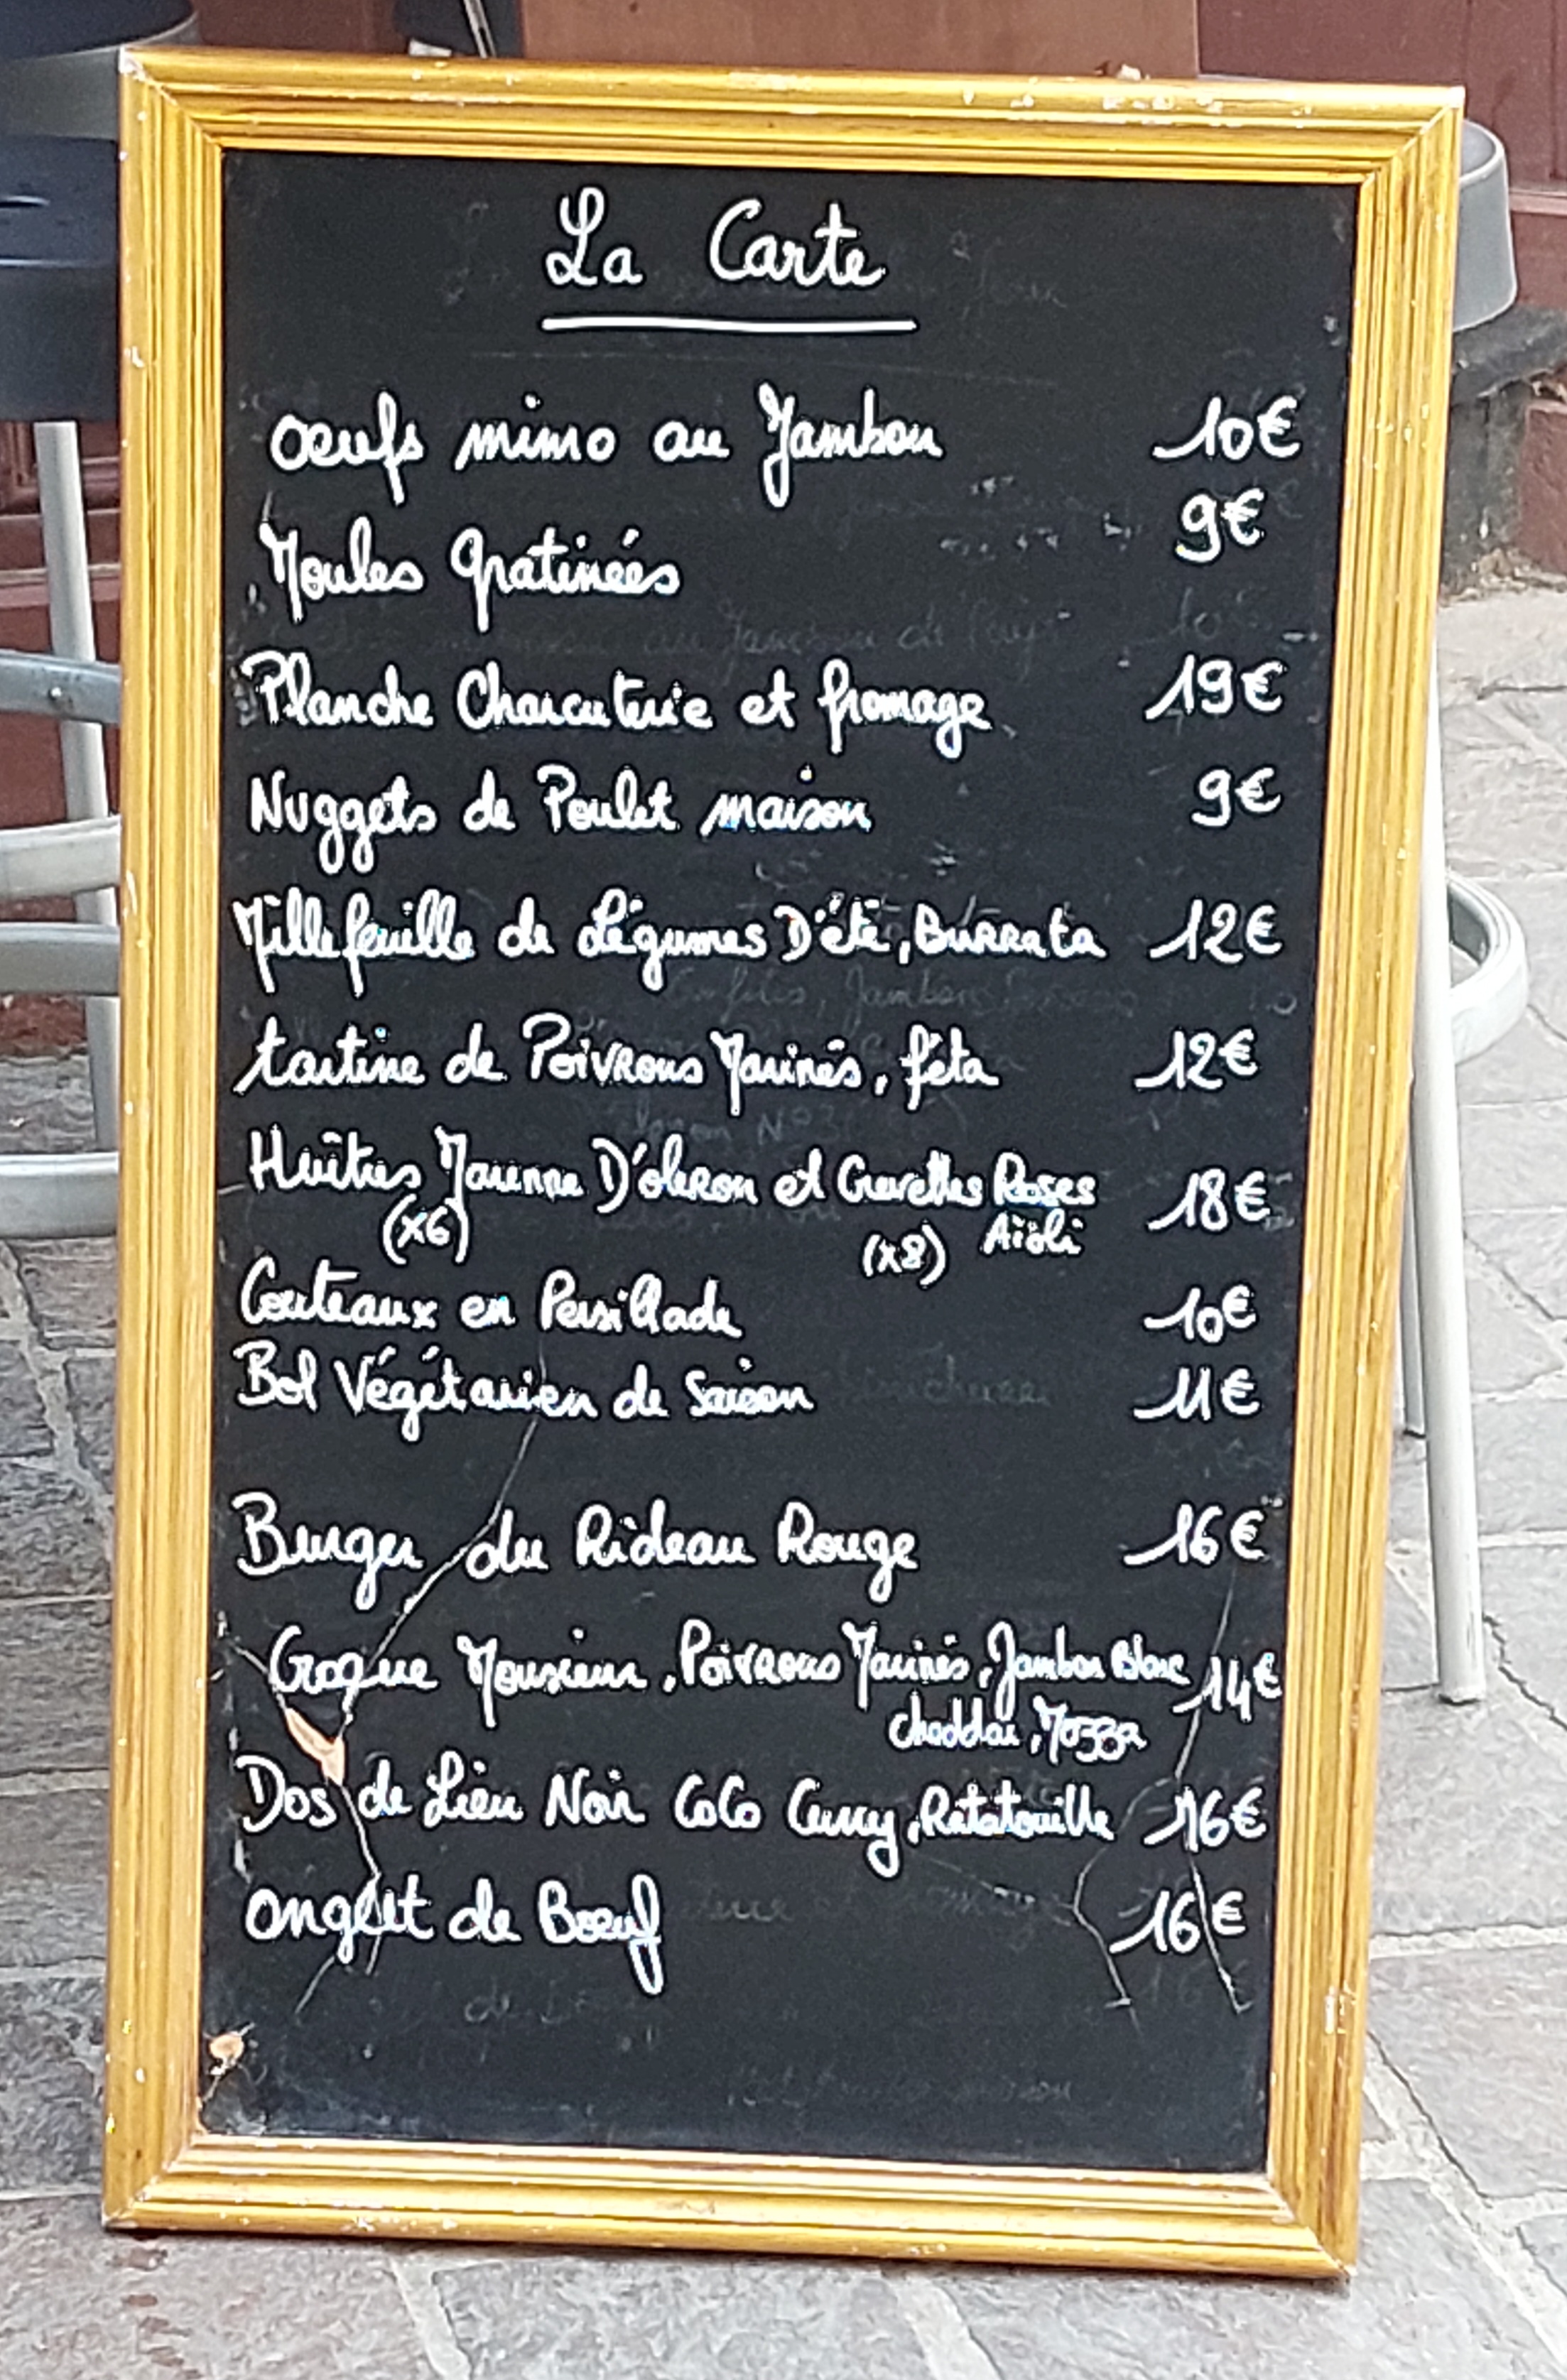 La Carte
oeufs mimo au Jambon 10€
Moules gratinées 9€
Planche Charcuterie et fromage 19€
Nuggets de Poulet maison 9€
Millefeuille de Légumes D'été, BURRata 12€
tartine de Poivrons Marinés, féta 12€
Huîtres Marenne D'oleron et Crevettes Roses 18€
(x6) (x8) Aïoli
Couteaux en Persillade 10€
Bol Végétarien de Saison 11€
Burger du Rideau Rouge 16€
Croque Monsieur, Poivrons Marinés, Jambon Blanc 14€
Cheddar, Mozza
Dos de Lieu Noir CoCo Curry, Ratatouille 16€
onglet de Boeuf 16€